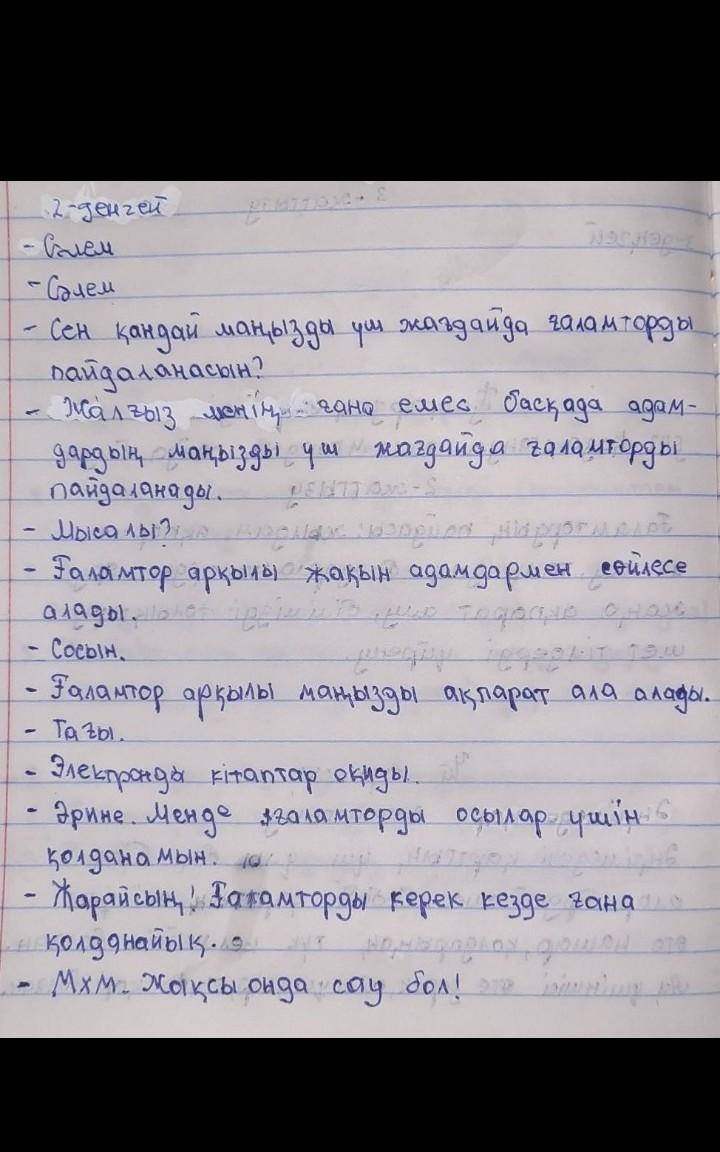 2-деңгей
- Сәлем
- Сәлем
- Сен қандай маңызды үш жағдайда ғаламторды
пайдаланасын?
- Жалғыз менің ғана емес басқада адам-
дардың маңызды үш жағдайда ғаламторды
пайдаланады.
- Мысалы?
- Ғаламтор арқылы жақын адамдармен сөйлесе
алады.
- Сосын.
- Ғаламтор арқылы маңызды ақпарат ала алады.
- Тағы.
- Электронды кітаптар оқиды.
- Әрине. Менде ғаламторды осылар үшін
қолданамын.
- Жарайсың! Ғаламторды керек кезде ғана
қолданайық.
- Мхм. Жақсы онда сау бол!